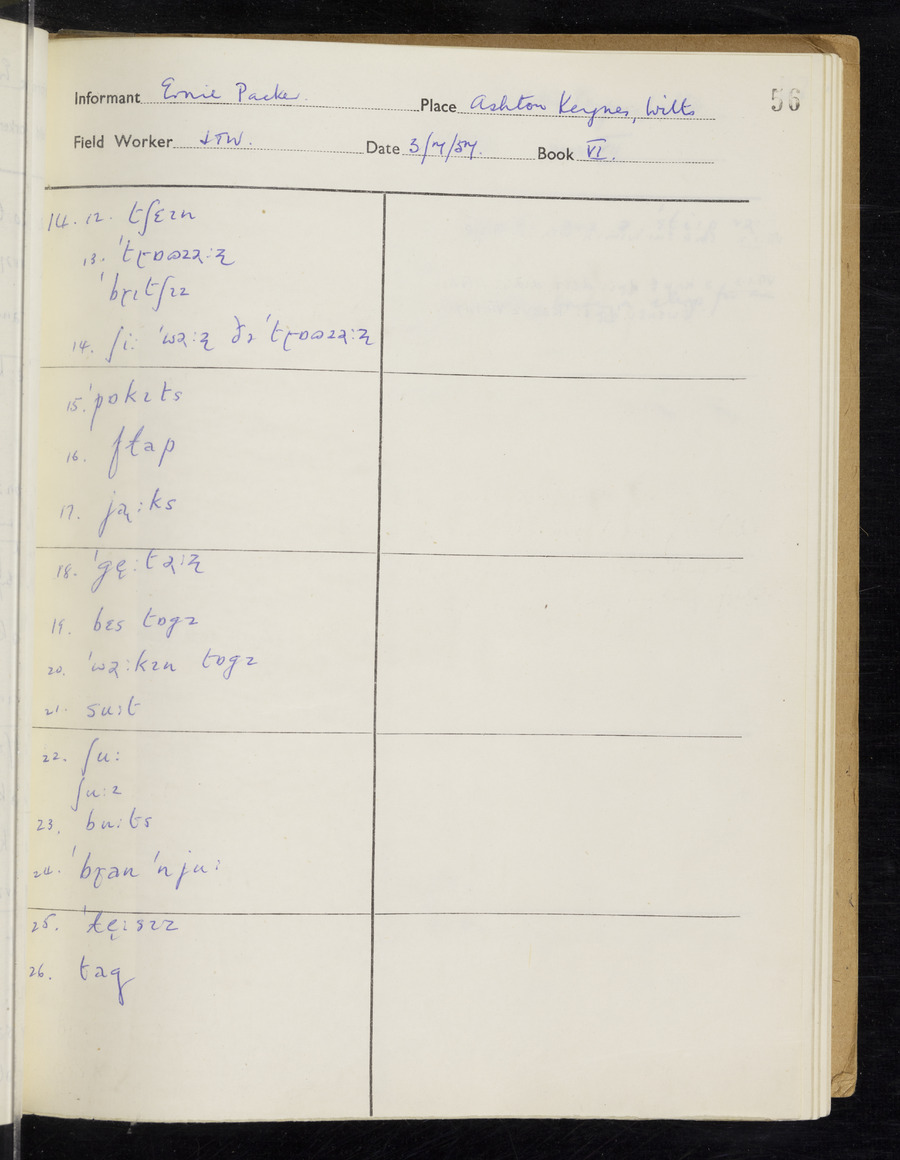 56
Informant Ernie Packer. Place Ashton Keynes, Wilts
Field Worker JTW. Date 3/7/57. Book VI.
14. 12. tʃɛɪn
13. ˈtɽɒʊzəːɻ
ˈbɽɪtʃɪz
14. ʃiː ˈwəːɻ ðə ˈtɽɒʊzəːɻ
15. ˈpɒkɪts
16. flap
17. jaːks
18. ˈge̞ːtəːɻ
19. bɛs tɒgz
20. ˈwəːkɪn tɒgz
21. suːt
22. ʃuː
ʃuːz
23. buːts
24. ˈbɽan ˈnjuː
25. ˈle̞ːsɪz
26. tag